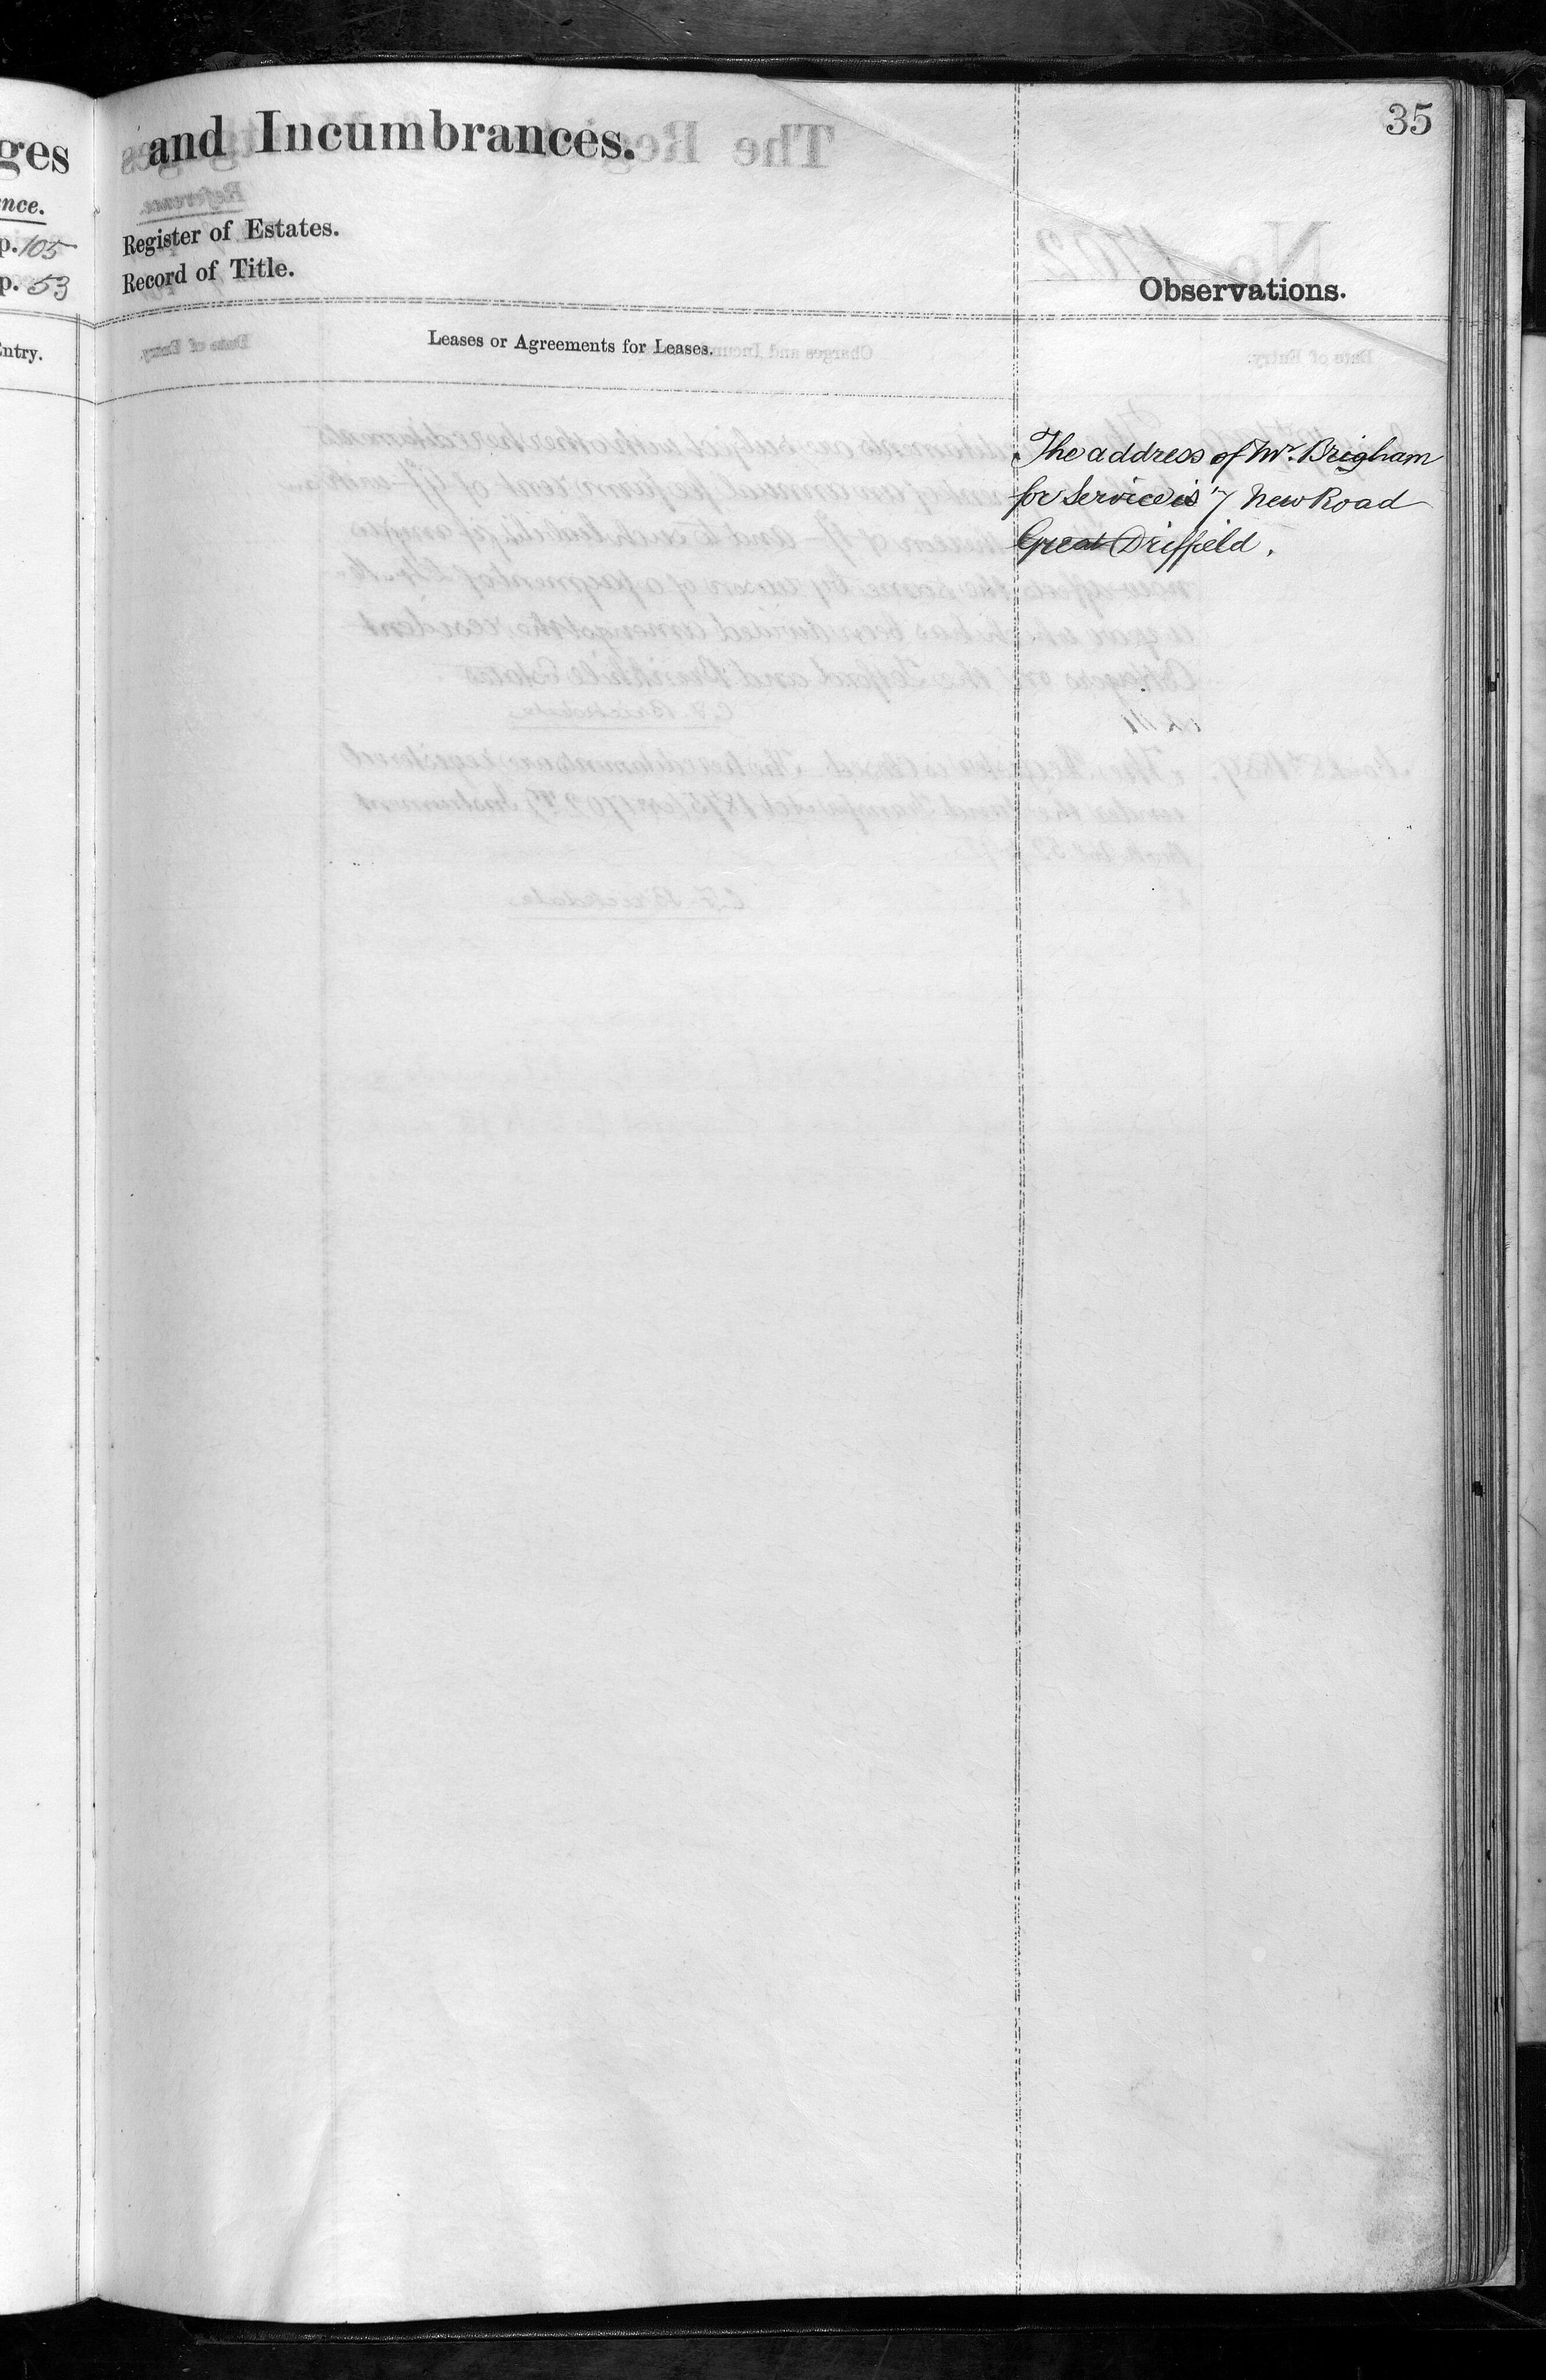 ges
nce.
p. 105
p. 53
Entry.
and Incumbrances.
35
Register of Estates.
Record of Title.
Observations.
Leases or Agreements for Leases.
The address of Mr. Brigham
for Service is 7 New Road
Great Driffield.